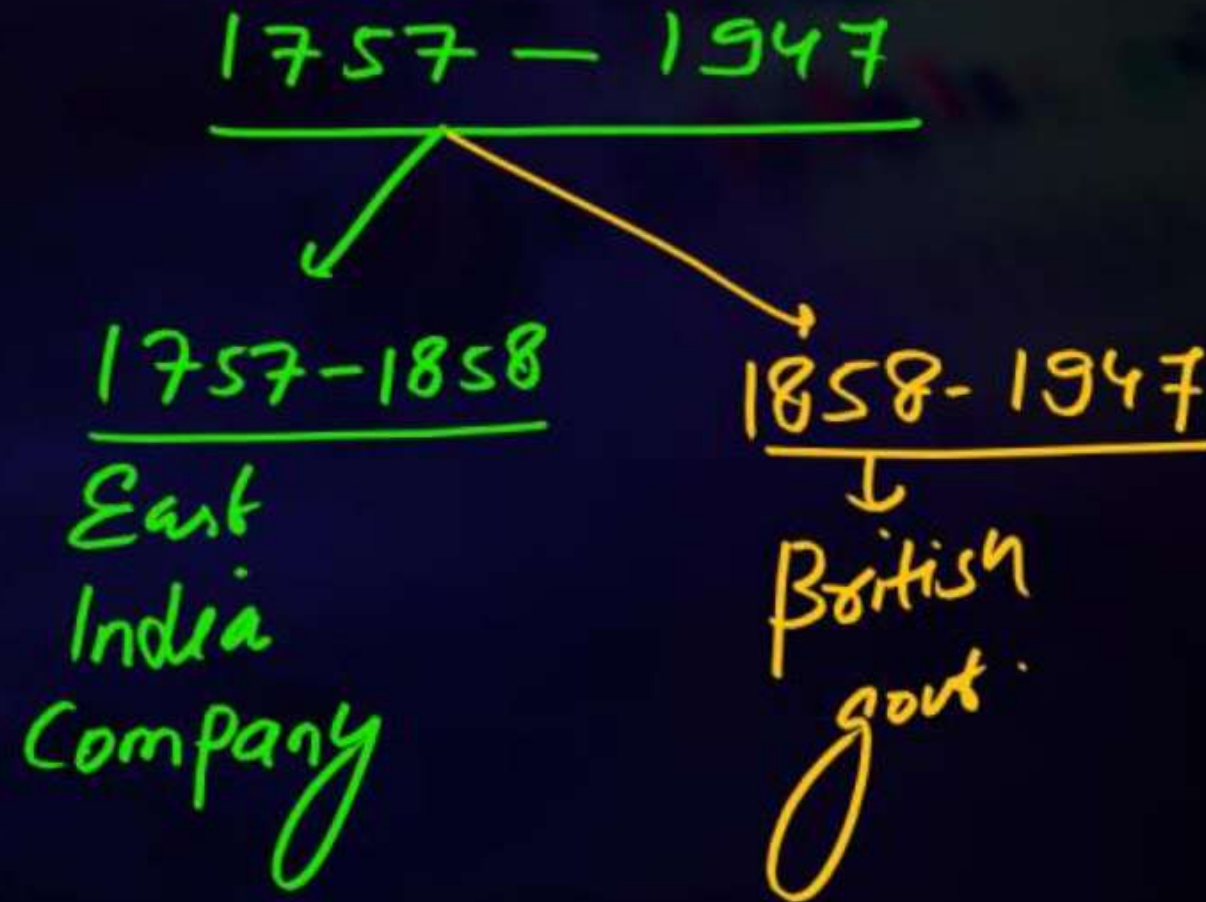 1757 — 1947
1757-1858
East
India
Company
1858-1947
British
govt.